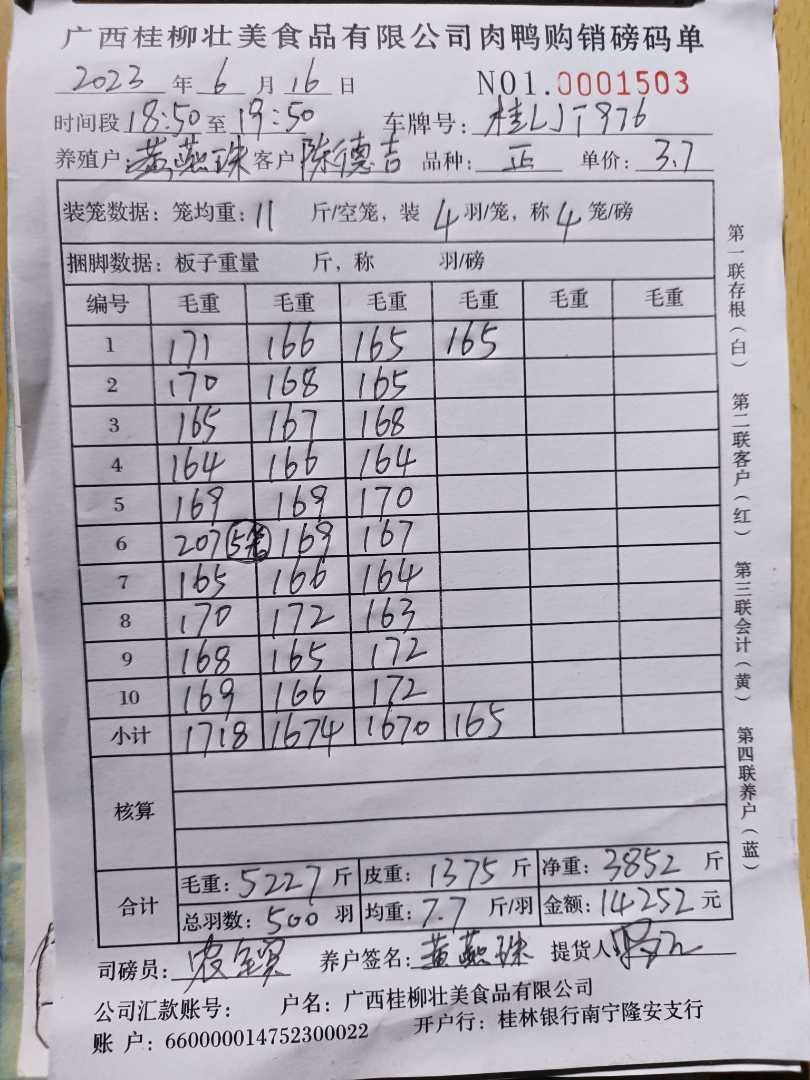 广西桂柳壮美食品有限公司肉鸭购销磅码单
2023 年 6 月 16 日 NO1.0001503
时间段 18:50 至 19:50 车牌号: 桂LJT976
养殖户: 黄燕珠 客户 陈德吉 品种: 正 单价: 3.7
装笼数据: 笼均重: 11 斤/空笼, 装 4 羽/笼, 称 4 笼/磅
捆脚数据: 板子重量 斤, 称 羽/磅
编号 毛重 毛重 毛重 毛重 毛重 毛重
1 171 166 165 165
2 170 168 165
3 165 167 168
4 164 166 164
5 169 169 170
6 207 5笼 169 167
7 165 166 164
8 170 172 163
9 168 165 172
10 169 166 172
小计 1718 1674 1670 165
核算
合计 毛重: 5227 斤 皮重: 1375 斤 净重: 3852 斤
总羽数: 500 羽 均重: 7.7 斤/羽 金额: 14252 元
司磅员: 养户签名: 黄燕珠 提货人
公司汇款账号: 户名: 广西桂柳壮美食品有限公司
账 户: 660000014752300022 开户行: 桂林银行南宁隆安支行
第一联存根(白) 第二联客户(红) 第三联会计(黄) 第四联养户(蓝)